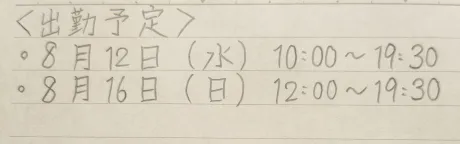 <出勤予定>
◦ 8月12日(水) 10:00～19:30
◦ 8月16日(日) 12:00～19:30